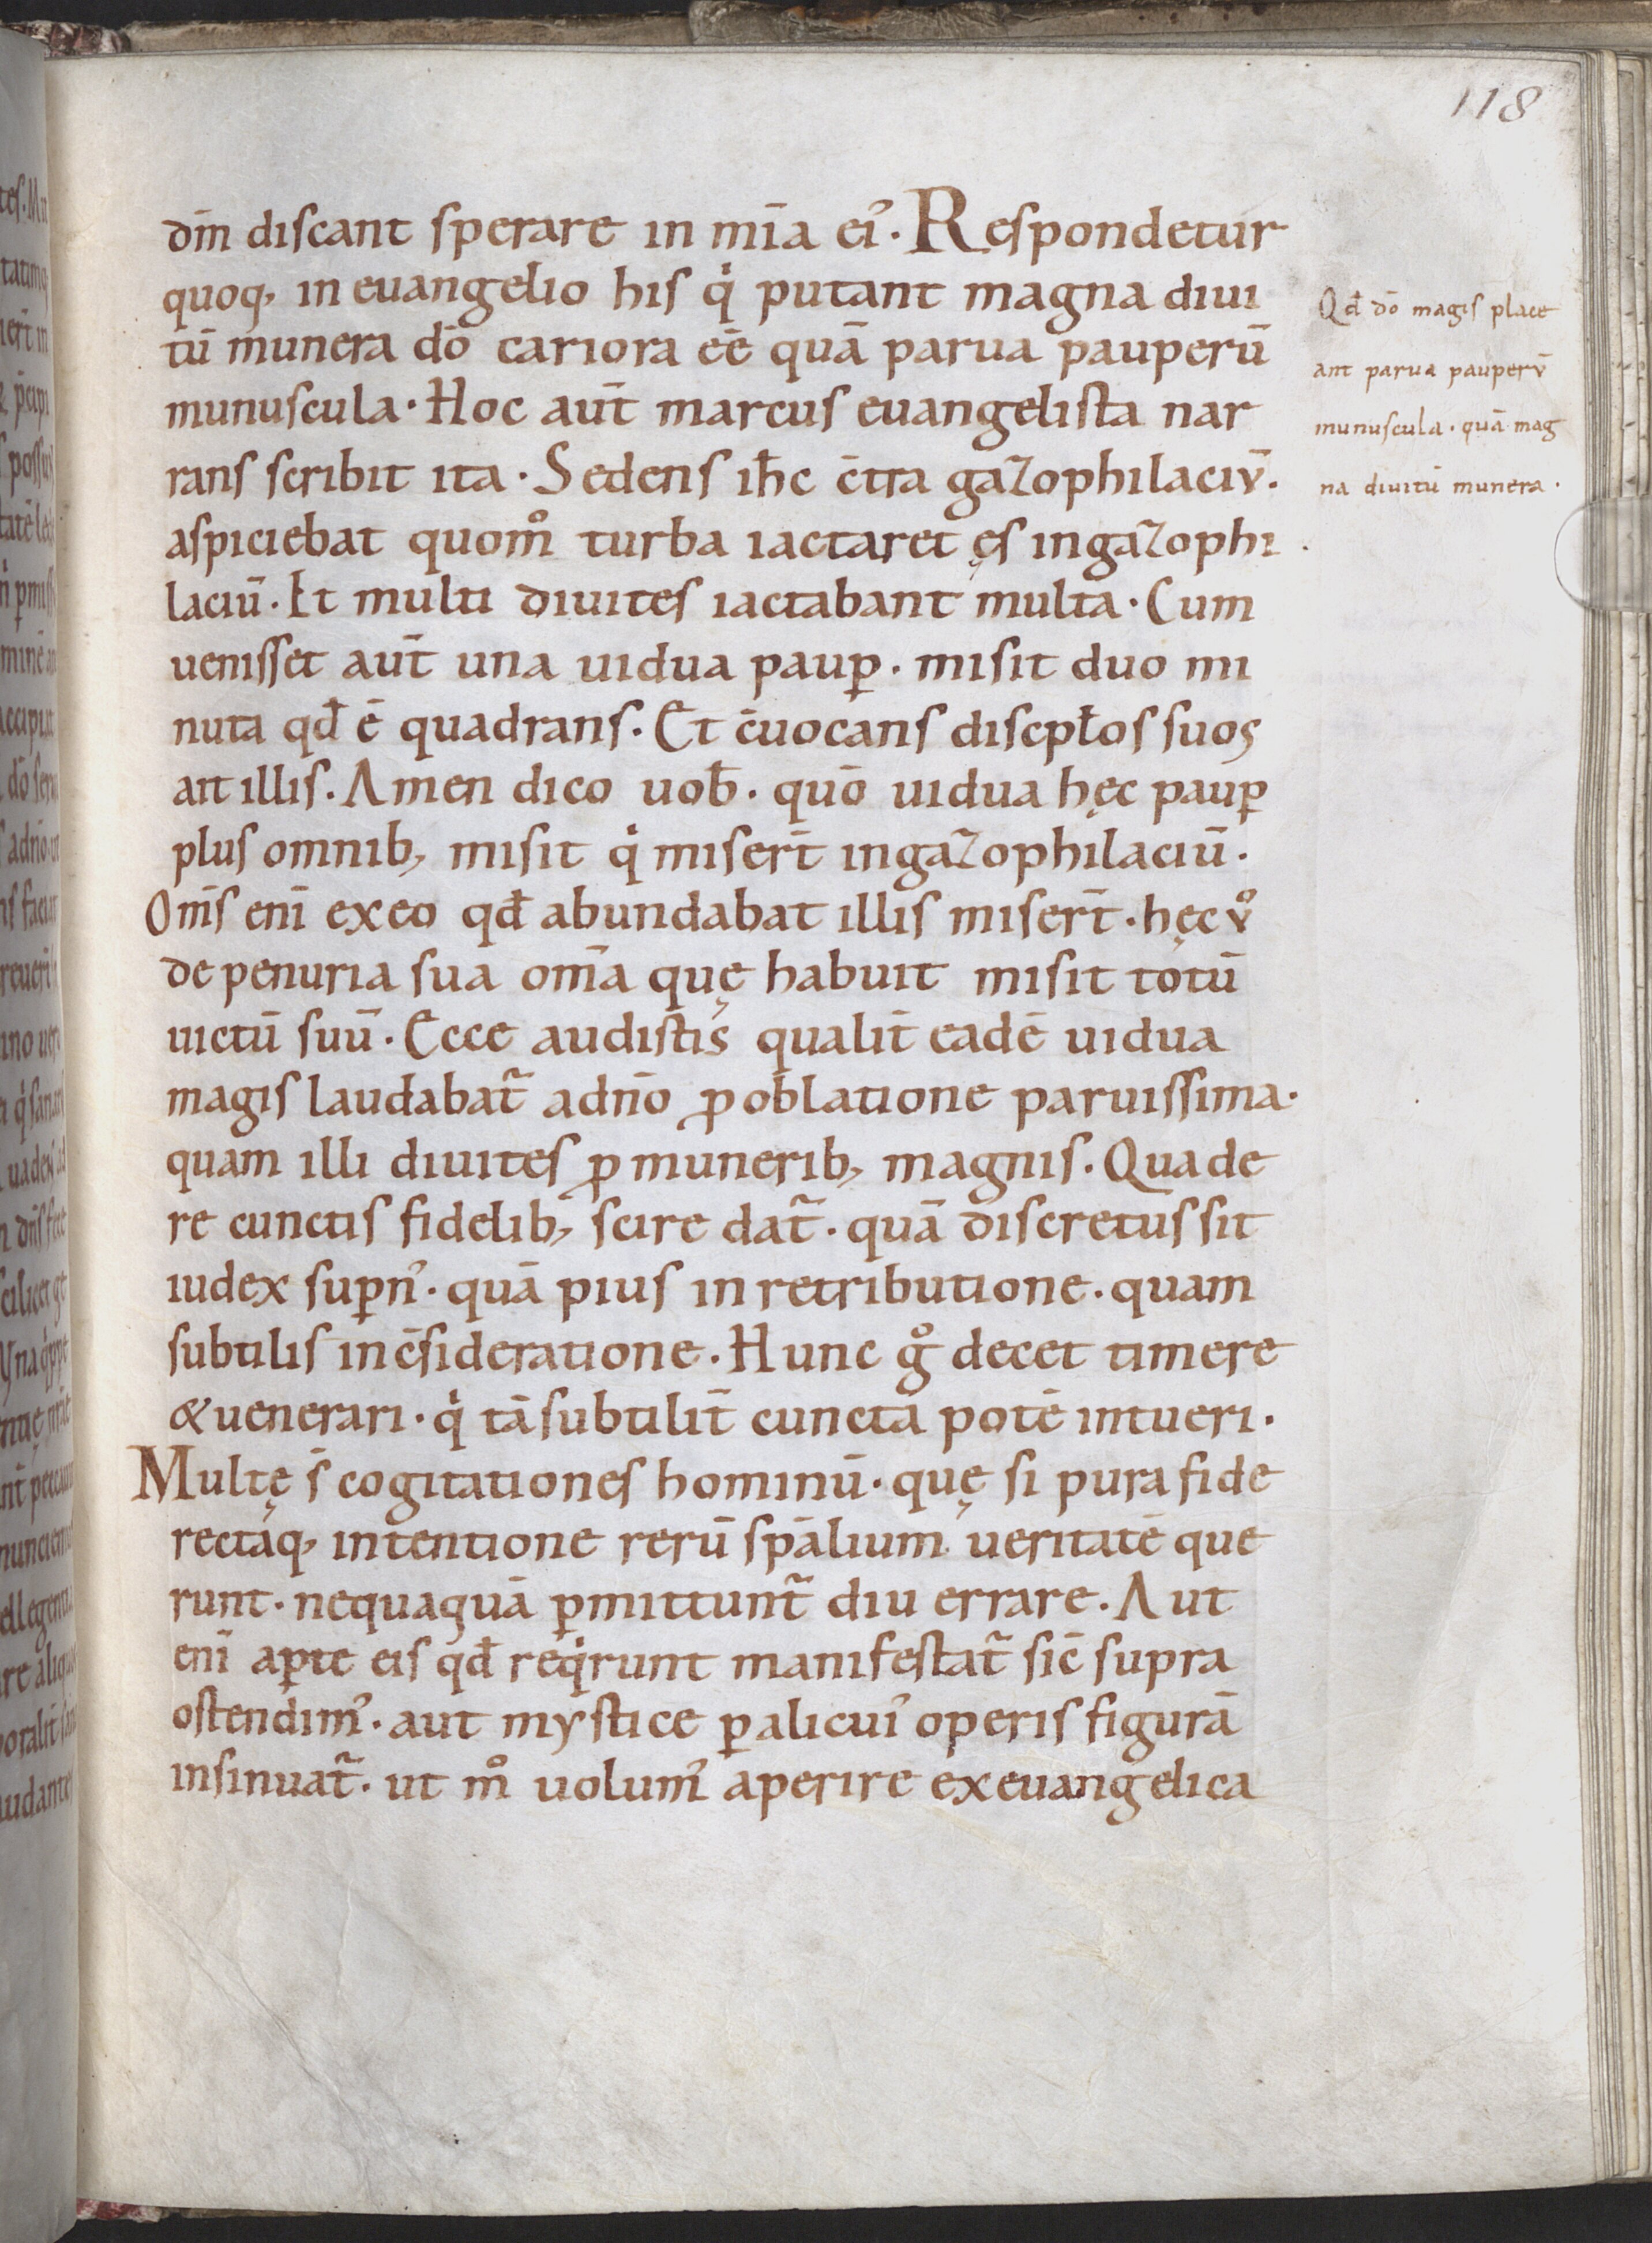 118
dm̄ discant sperare in mīa ei᾽. Respondetur
quoq, in euangelio his q̇ putant magna diui
tū munera dō cariora eē quā parua pauperū
munuscula. Hoc aut̄ marcus euangelista nar
rans scribit ita. Sedens ihc̄ c̄tra gazophilaciv̄.
aspiciebat quom̊ turba iactaret ęs ingazophi
laciū. Et multi diuites iactabant multa. Cum
uenisset aut̄ una uidua paup̲. misit duo mi
nuta qđ ē quadrans. Et c̄uocans discpl̄os suos
ait illis. Amen dico uob̄. quō uidua hęc paup̲
plus omnib, misit q̇ misert̄ ingazophilaciū.
Om̄s enī exeo qđ abundabat illis misert̄. hęc v̊
de penuria sua om̄a quę habuit misit totū
uictū suū. Ecce audistis qualit̄ eadē uidua
magis laudabat᷑ adn̄o ꝓ oblatione paruissima.
quam illi diuites ꝓ munerib, magnis. Qua de
re cunctis fidelib, scire dat᷑. quā discretus sit
iudex sup̲n᾽. quā pius in retributione. quam
subtilis in c̄sideratione. Hunc g̊ decet timere
& uenerari. q̇ tā subtilit̄ cuncta potē intueri.
Multę s̄ cogitationes hominū. quę si pura fide
rectaq, intentione rerū sp̄alium ueritatē que
runt. nequaquā p̲mittunt᷑ diu errare. Aut
enī ap̲te eis qđ req̇runt manifestat᷑ sic̄ supra
ostendim᾽. aut mystice p̲ alicui᾽ operis figurā
insinuat᷑. ut m̊ uolum᾽ aperire ex euangelica
Qđ dō magis place
ant parua pauperv̄
munuscula. quā mag
na diuitū munera.